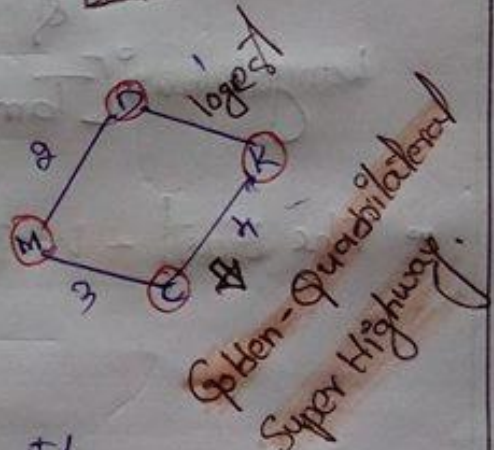 D
1
logest
2
K
M
4
3
C
Golden-Quadsilateral
Super Highway.